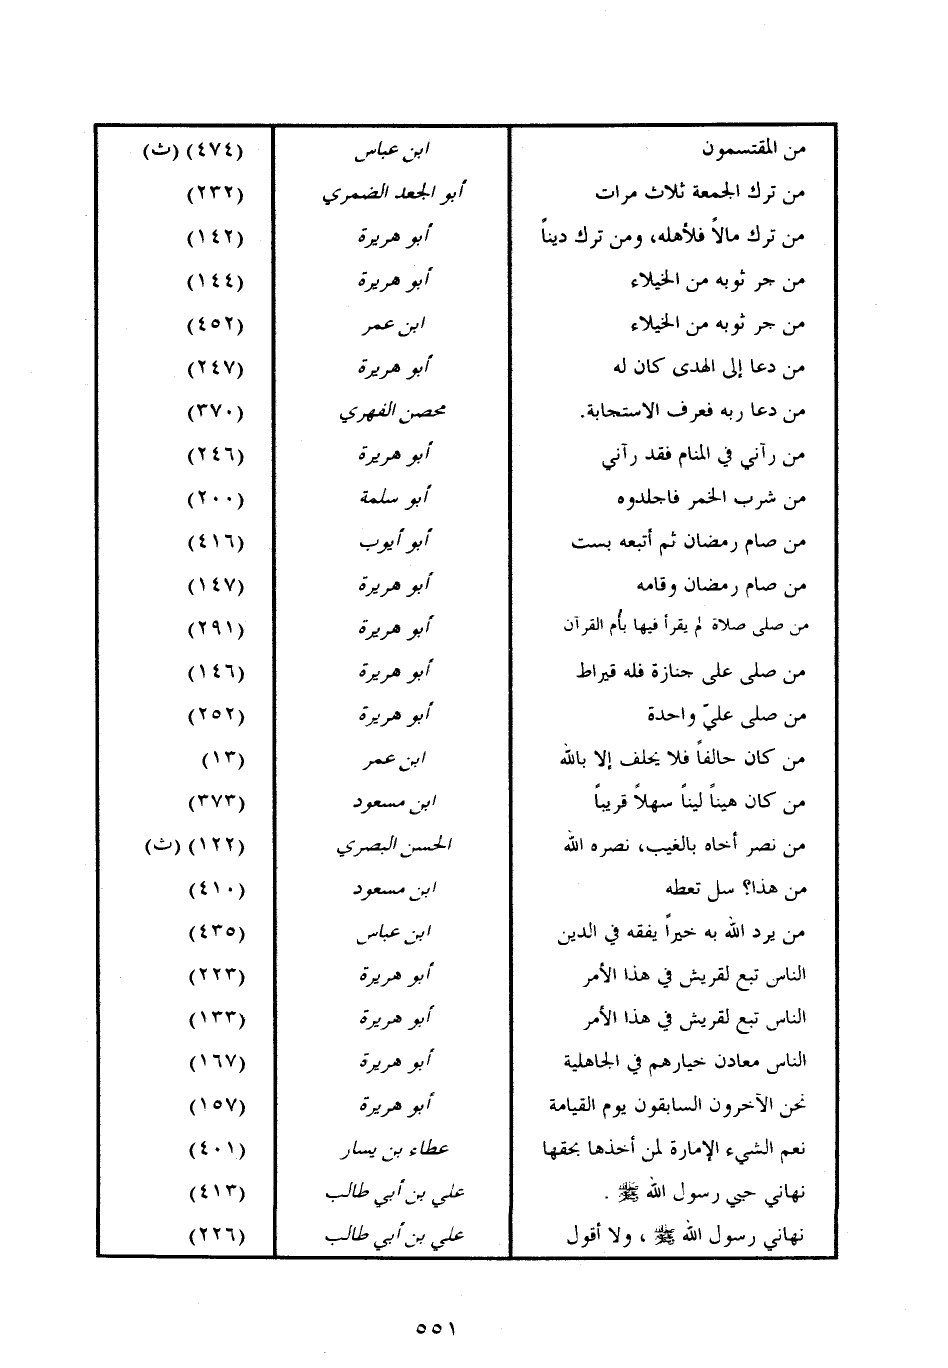 من المقتسمون ابن عباس (٤٧٤) (ث)
من ترك الجمعة ثلاث مرات أبو الجعد الضمري (٢٣٢)
من ترك مالاً فلأهله، ومن ترك ديناً أبو هريرة (١٤٢)
من جر ثوبه من الخيلاء أبو هريرة (١٤٤)
من جر ثوبه من الخيلاء ابن عمر (٤٥٢)
من دعا إلى الهدى كان له أبو هريرة (٢٤٧)
من دعا ربه فعرف الاستجابة. محصن الفهري (٣٧٠)
من رآني في المنام فقد رآني أبو هريرة (٢٤٦)
من شرب الخمر فاجلدوه أبو سلمة (٢٠٠)
من صام رمضان ثم أتبعه بست أبو أيوب (٤١٦)
من صام رمضان وقامه أبو هريرة (١٤٧)
من صلى صلاة لم يقرأ فيها بأم القرآن أبو هريرة (٢٩١)
من صلى على جنازة فله قيراط أبو هريرة (١٤٦)
من صلى عليّ واحدة أبو هريرة (٢٥٢)
من كان حالفاً فلا يحلف إلا بالله ابن عمر (١٣)
من كان هيناً ليناً سهلاً قريباً ابن مسعود (٣٧٣)
من نصر أخاه بالغيب، نصره الله الحسن البصري (١٢٢) (ث)
من هذا؟ سل تعطه ابن مسعود (٤١٠)
من يرد الله به خيراً يفقه في الدين ابن عباس (٤٣٥)
الناس تبع لقريش في هذا الأمر أبو هريرة (٢٢٣)
الناس تبع لقريش في هذا الأمر أبو هريرة (١٣٣)
الناس معادن خيارهم في الجاهلية أبو هريرة (١٦٧)
نحن الآخرون السابقون يوم القيامة أبو هريرة (١٥٧)
نعم الشيء الإمارة لمن أخذها بحقها عطاء بن يسار (٤٠١)
نهاني حبي رسول الله ﷺ . علي بن أبي طالب (٤١٣)
نهاني رسول الله ﷺ ، ولا أقول علي بن أبي طالب (٢٢٦)
٥٥١